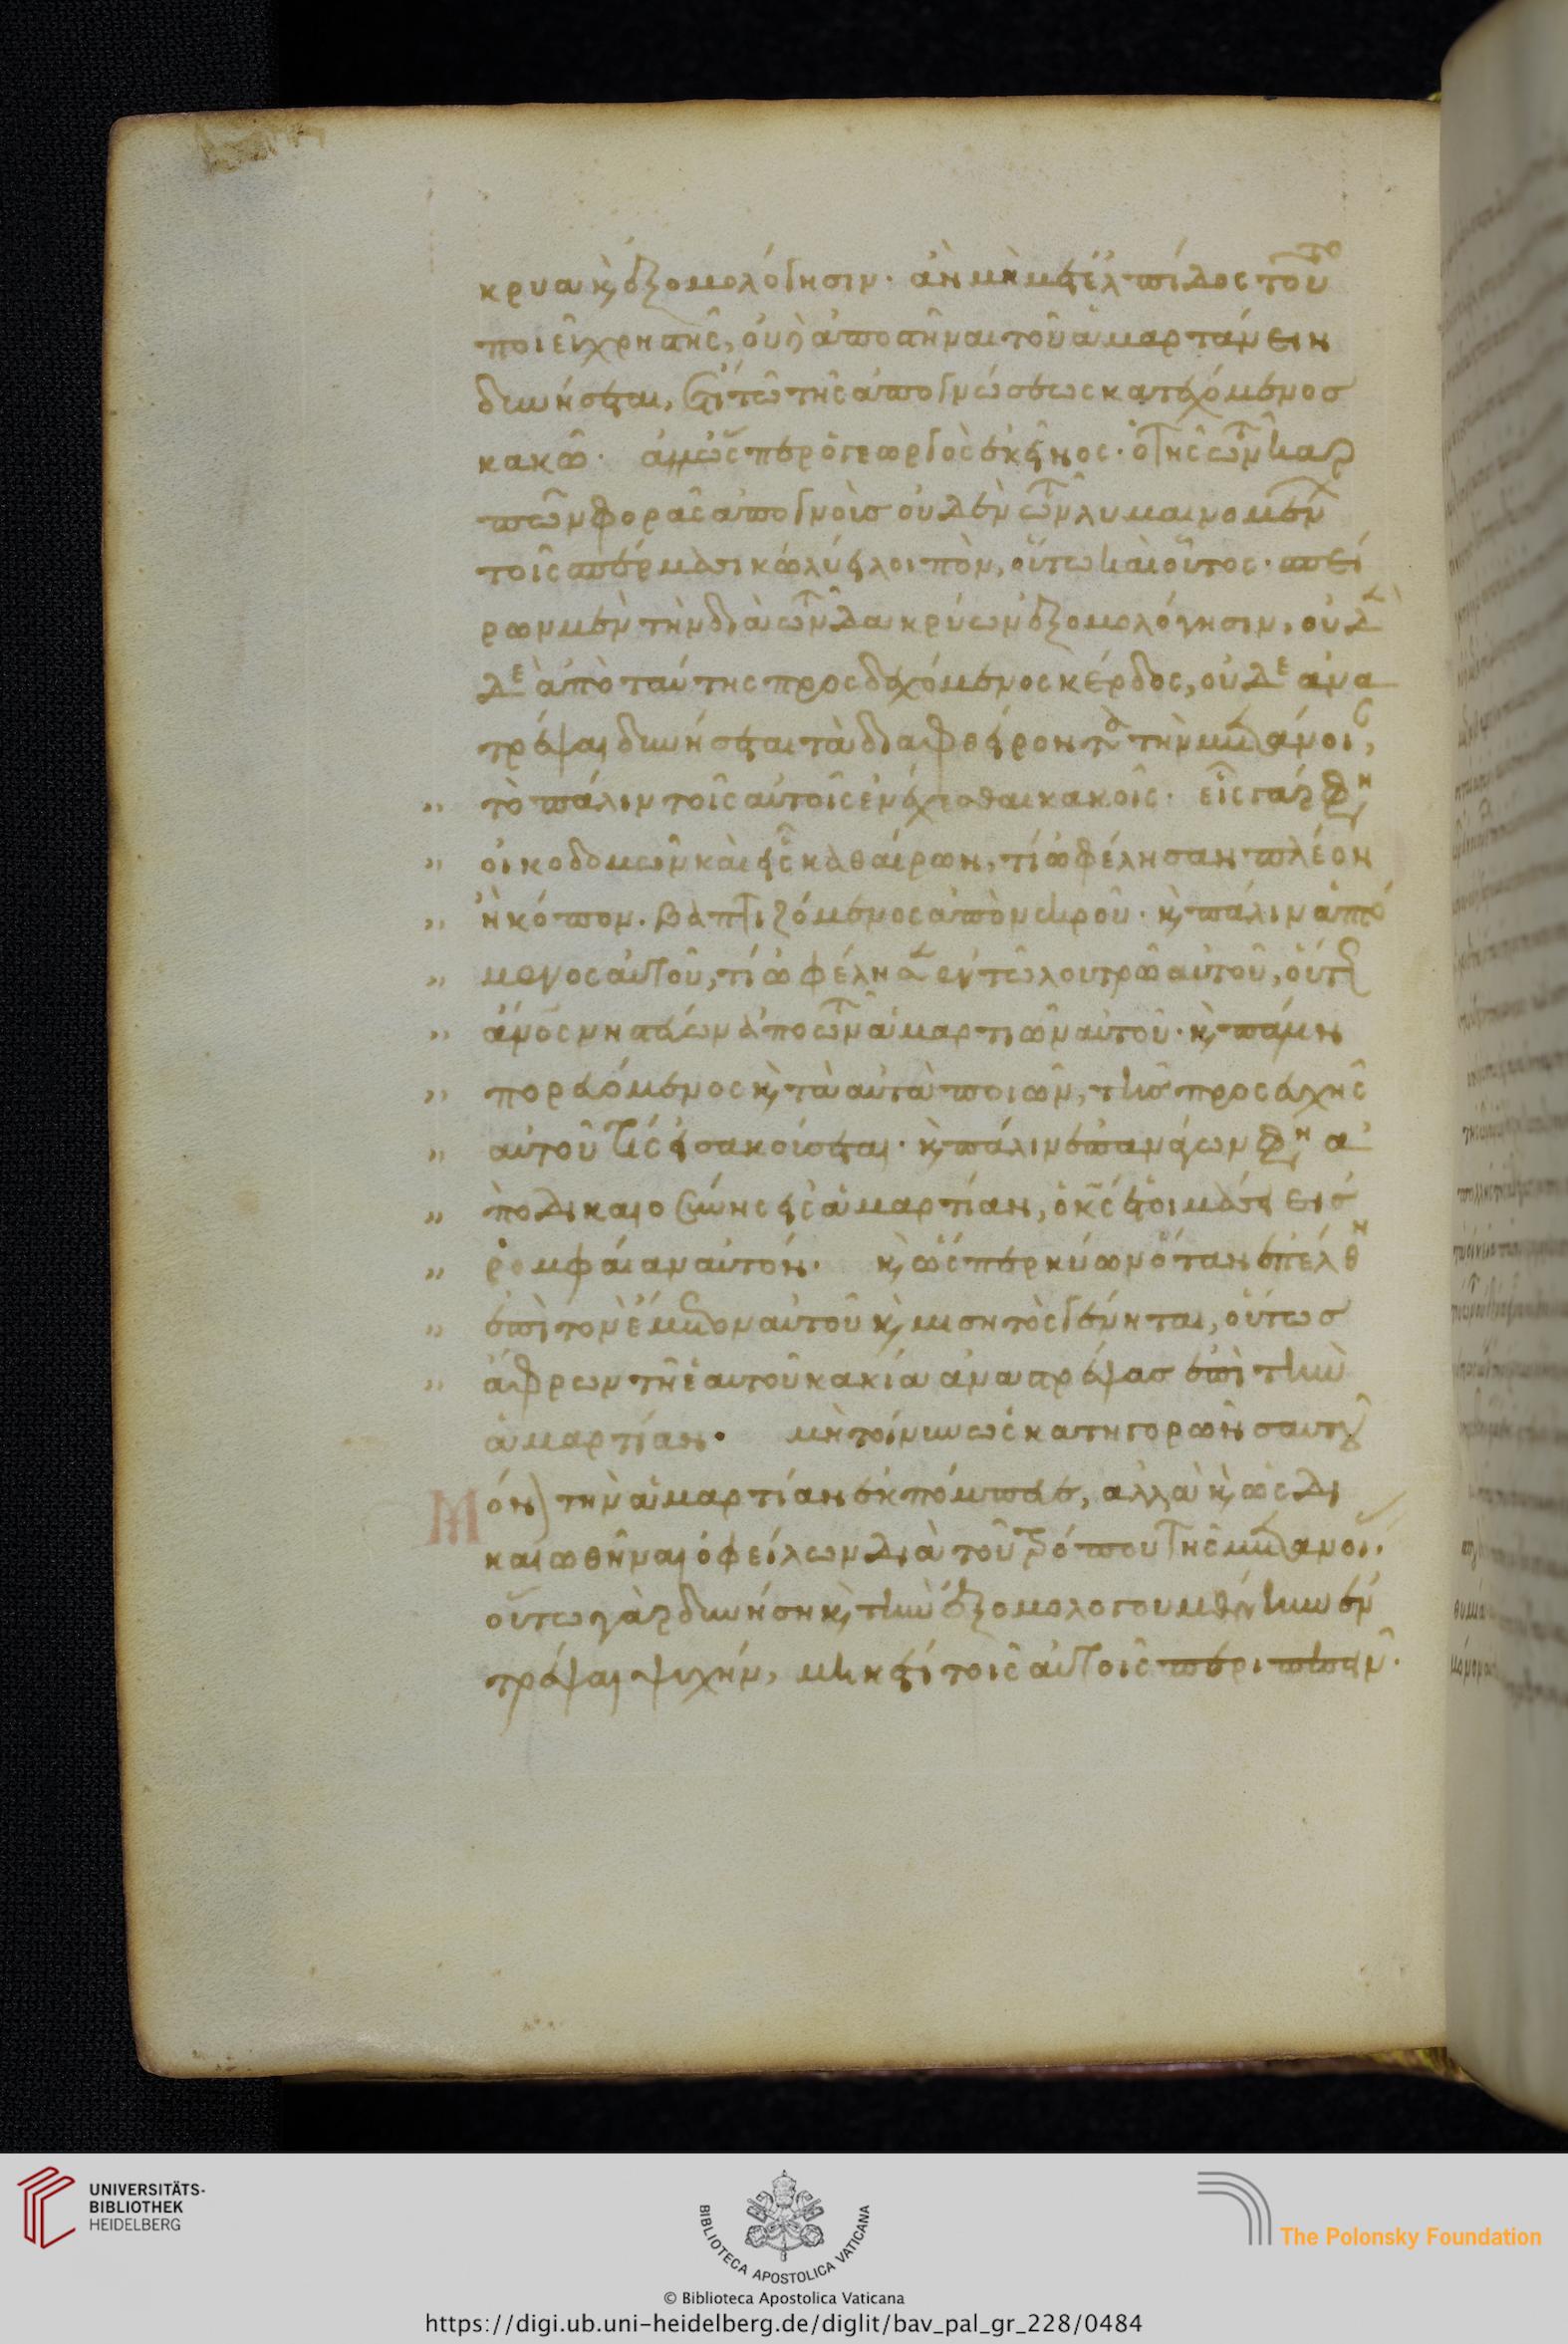 κρυα κ, ἐξομολόγησιν· ἂν μὴ μετ' ἐλπίδος τοῦτο
ποιεῖν χρηστῆς, οὐχ ἀποστῆναι τοῦ ἁμαρτάνειν
δυνήσεται, ἔτι τῶ τῆς ἀπογνώσεως κατεχόμενος
κακῶ· ἀλλ' ὥσπερ ὁ γεωργὸς ἐκεῖνος· ὁ τῆς τῶν καρ
πῶν φορᾶς ἀπογνοὺσ οὐδὲν τῶν λυμαινομένων
τοῖς σπέρμασι κωλύει λοιπὸν, οὕτω καὶ οὗτος· σπεί
ρων μὲν τὴν διὰ τῶν δακρύων ἐξομολόγησιν, οὐδὲν
δὲ ἀπὸ ταύτης προσδεχόμενος κέρδος, οὐδὲ ἀνα
τρέψαι δυνήσεται τὰ διαφθείροντα τὴν μετάνοιαν,
τὸ πάλιν τοῖς αὐτοῖς ἐνέχεσθαι κακοῖς· εἷς γάρ φησιν
οἰκοδομῶν καὶ εἷς καθαίρων, τί ὠφέλησαν πλέον
ἢ κόπον. βαπτιζόμενος ἀπὸ νεκροῦ· κ, πάλιν ἁπτό
μενος αὐτοῦ, τί ὠφέλησεν ἐν τῶ λουτρῶ αὐτοῦ, οὕτως
ἄνος νηστεύων ἀπὸ τῶν ἁμαρτιῶν αὐτοῦ· κ, πάλιν
πορευόμενος κ, τὰ αὐτὰ ποιῶν, τῆς προσευχῆς
αὐτοῦ τίς εἰσακούσεται· κ, πάλιν ἐπανάγων φησιν ἀ
πὸ δικαιοσύνης εἰς ἁμαρτίαν, ὁ κς ἑτοιμάσει εἰσ
ῥομφαίαν αὐτόν· κ, ὥσπερ κύων ὅταν ἐπέλθη
ἐπὶ τὸν ἔμετον αὐτοῦ κ, μισητὸς γένηται, οὕτωσ
ἄφρων τῆ ἑαυτοῦ κακία ἀναστρέψασ ἐπὶ τὴν
ἁμαρτίαν· μὴ τοίνυν ὡς κατηγορῶν σαυτοῦ
Μόνον τὴν ἁμαρτίαν ἐκπόμπευε, ἀλλὰ κ, ὡς δι
καιωθῆναι ὀφείλων διὰ τοῦ τρόπου τῆς μετανοίας.
οὕτω γὰρ δυνήση κ, τὴν ἐξομολογουμένην ἐν
τρέψαι ψυχήν, μηκέτι τοῖς αὐτοῖς περιπεσεῖν.
UNIVERSITÄTS-
BIBLIOTHEK
HEIDELBERG
BIBLIOTECA APOSTOLICA VATICANA
The Polonsky Foundation
© Biblioteca Apostolica Vaticana
https://digi.ub.uni-heidelberg.de/diglit/bav_pal_gr_228/0484